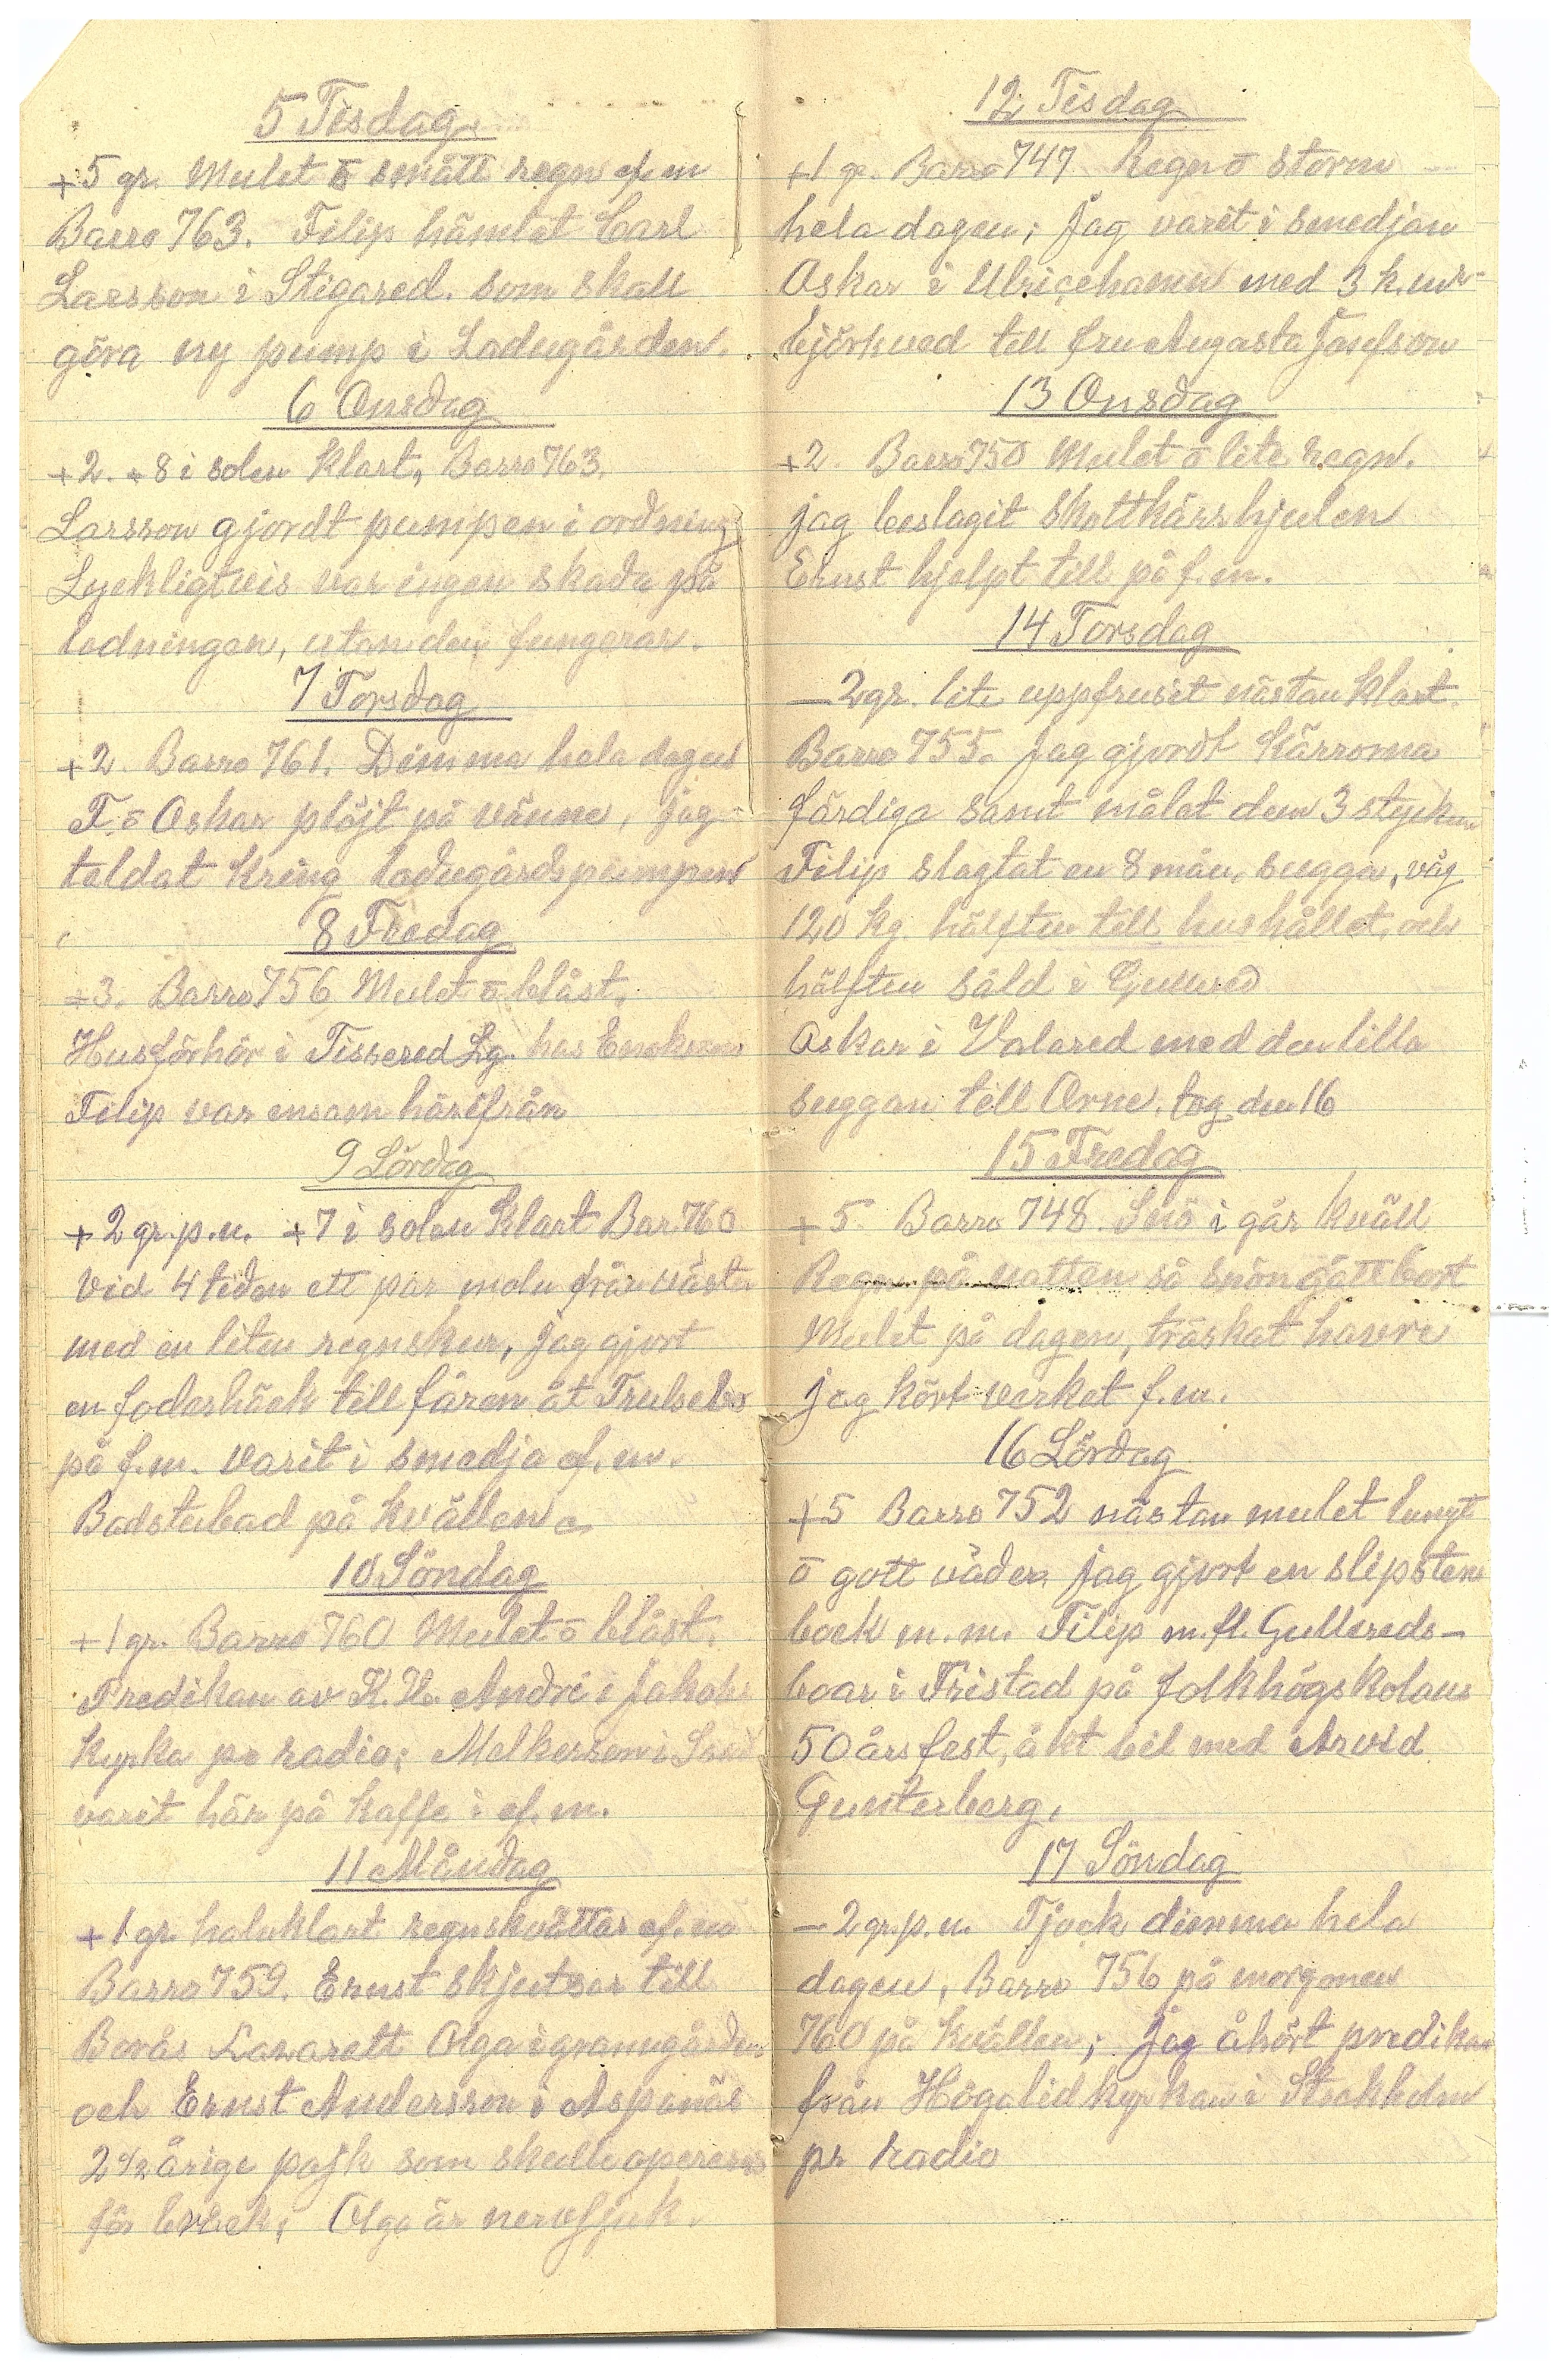 5 Tisdag
+5 gr. Mulet ō smått regn ef.m
Barro 763. Filip hämtat Carl
Larsson i Stigared. som skall
göra ny pump i Ladugården.
6 Onsdag
+2. +8 i solen klart, Barro 763.
Larsson gjordt pumpen i ordning
Lyckligtvis var ingen skada på
ledningen, utan den fungerar.
7 Torsdag
+2. Barro 761. Dimma hela dagen
F. ō Oskar plöjt på vänne, jag
taldat kring ladugårdspumpen
8 Fredag
+3. Barro 756 Mulet ō blåst.
Husförhör i Tissered Lg. hos
Filip var ensam härifrån
9 Lördag
+2 gr. p.m. +7 i solen Klart Bar. 760
Vid 4 tiden ett par moln från väster
med en liten regnskur, jag gjort
en foderhäck till fåren åt Trulsebo
på f.m. varit i smedja ef.m.
Badstubad på kvällen
10 Söndag
+1 gr. Barro 760 Mulet ō blåst.
Predikan av K. Hr. André i Jakobs
Kyrka pr radio; Melkersson i
varit här på kaffe i ef.m.
11 Måndag
+1 gr. halvklart regnskvättar ef.m
Barro 759. Ernst skjutsar till
Borås Lasarett Olga i granngården
och Ernst Andersson i Aspenäs
2½ årige pojk som skulle opereras
för bråck; Olga är nervsjuk.
12 Tisdag
+1 gr. Barro 747 Regn ō storm
hela dagen; Jag varit i smedjan
Oskar i Ulricehamn med 3 k.mr
björkved till fru Augasta Josefson
13 Onsdag
+2 Barro 750 Mulet ō lite regn.
jag beslagit skottkärshjulen
Ernst hjelpt till på f.m.
14 Torsdag
—2 gr. lite uppfruset nästan klart.
Barro 755. jag gjordt kärrorna
färdiga samt målat dem 3 stycken
Filip slagtat en 8 mån. sugga, väg
120 kg. hälften till hushållet, och
hälften såld i Gullered
Oskar i Valared med den lilla
suggan till Orne. tog den 16
15 Fredag
+5 Barro 748. Snö i går kväll
Regn på natten så snön gått bort
Mulet på dagen, träskat havre
jag kört verket f.m.
16 Lördag
+5 Barro 752 nästan mulet lungt
ō gott väder. jag gjort en slipstens
bock m.m. Filip m.fl. Gullereds—
boar i Fristad på folkhögskolans
50 års fest, åkt bil med Arvid
Gunterberg.
17 Söndag
—2 gr. p.m. Tjock dimma hela
dagen, Barro 756 på morgonen
760 på kvällen; Jag åhört predikan
från Högalid kyrkan i Stockholm
pr radio